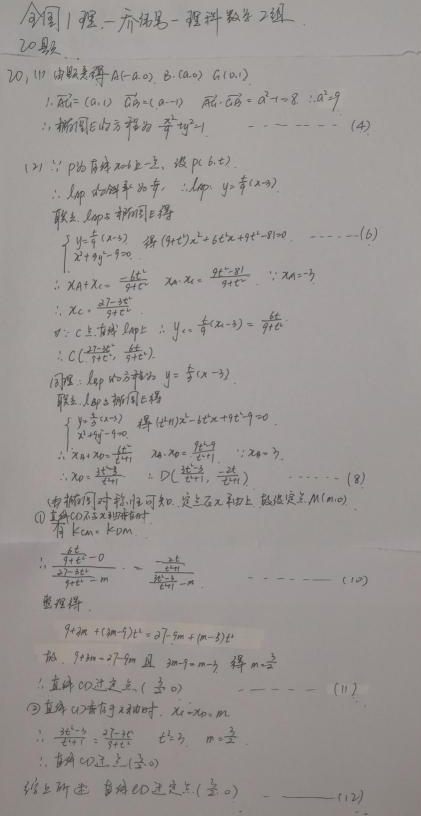 全国1理—乔伟男—理科数学2组
20题
20,(1) 由题意得 A(-a.0) B.(a.0) G(0.1)
∴ AG=(a,1) GB=(a-1) AG·GB=a²-1=8 ∴a²=9
∴椭圆E的方程为 x²/9+y²=1 ------- (4)
(2) ∵ P为直线x=6上一点, 设P(6.t)
∴ lAP的斜率为t/9, ∴lAP: y=t/9(x-3)
联立lAP与椭圆E得
{ y=t/9(x-3) 得(9+t²)x²+6t²x+9t²-81=0 ------(6)
x²+9y²-9=0
∴ xA+xC=-6t²/9+t² xA·xC=9t²-81/9+t² ∵xA=-3
∴ xC=27-3t²/9+t²
又∵C点在直线lAP上 ∴yC=t/9(xC-3)=6t/9+t²
∴C(27-3t²/9+t², 6t/9+t²)
同理: lBP的方程为 y=t/3(x-3)
联立lBP与椭圆E得
{ y=t/3(x-3) 得(t²+1)x²-6t²x+9t²-9=0
x²+9y²-9=0
∴xB+xD=6t²/t²+1 xB·xD=9t²-9/t²+1 ∵xB=3
∴xD=3t²-3/t²+1 ∴D(3t²-3/t²+1, -2t/t²+1) ------ (8)
(由椭圆对称性可知定点在x轴上, 故设定点M(m.0)
①直线CD不与x轴垂直时
有 KCM=KDM
∴ 6t/9+t² -0 / 27-3t²/9+t² -m = -2t/t²+1 / 3t²-3/t²+1 -m ------- (10)
整理得
9+3m+(3m-9)t²=27-9m+(m-3)t²
故. 9+3m=27-9m 且 3m-9=m-3 得m=3/2
∴直线CD过定点(3/2.0) ----- (11)
②直线CD垂直于x轴时. xC=xD=m
∴ 3t²-3/t²+1=27-3t²/9+t² t²=3 m=3/2
∴直线CD过点(3/2.0)
综上所述 直线CD过定点(3/2.0) ———(12)